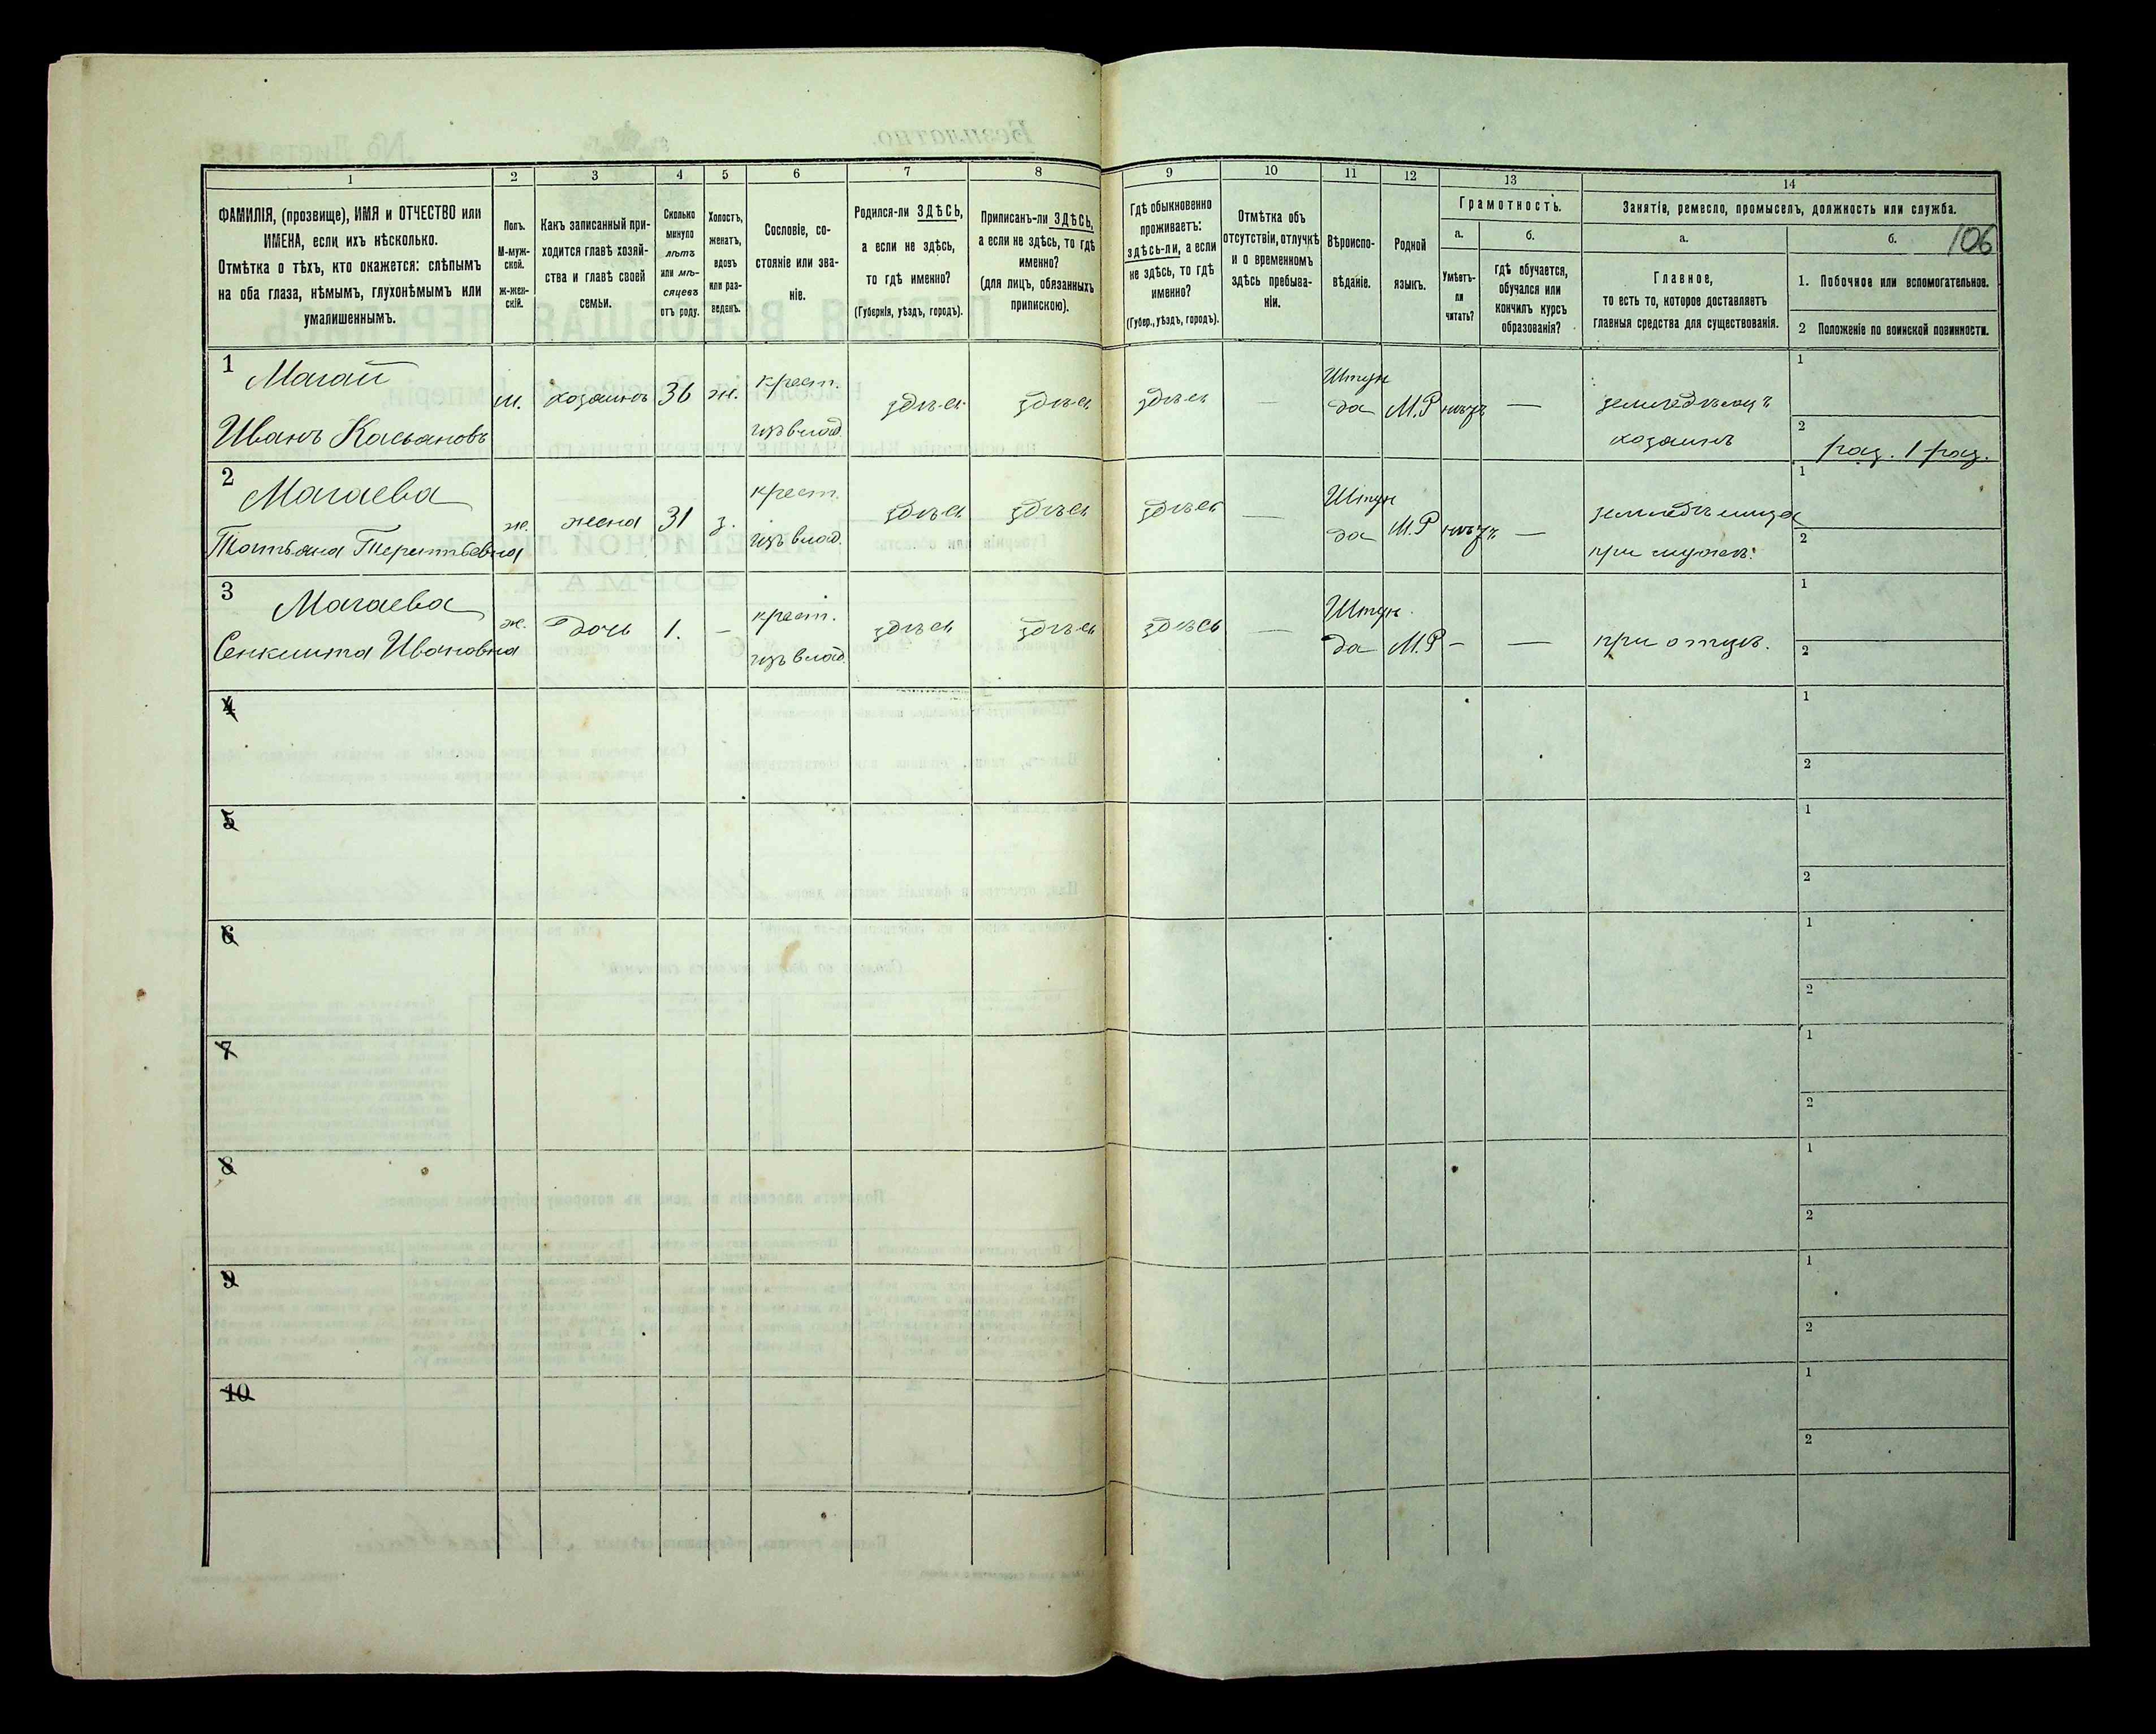 1
2
3
4
5
6
7
8
9
10
11
12
13
14
ФАМИЛІЯ, (прозвище), ИМЯ и ОТЧЕСТВО или
ИМЕНА, если ихъ нѣсколько.
Отмѣтка о тѣхъ, кто окажется: слѣпымъ
на оба глаза, нѣмымъ, глухонѣмымъ или
умалишеннымъ.
Полъ.
М-муж-
ской.
Ж-жен-
скій.
Какъ записанный при-
ходится главѣ хозяй-
ства и главѣ своей
семьи.
Сколько
минуло
лѣтъ
или мѣ-
сяцевъ
отъ роду.
Холостъ,
женатъ,
вдовъ
или раз-
веденъ.
Сословіе, со-
стояніе или зва-
ніе.
Родился-ли ЗДѢСЬ,
а если не здѣсь,
то гдѣ именно?
(Губернія, уѣздъ, городъ).
Приписанъ-ли ЗДѢСЬ,
а если не здѣсь, то гдѣ
именно?
(для лицъ, обязанныхъ
припискою).
Гдѣ обыкновенно
проживаетъ:
здѣсь-ли, а если
не здѣсь, то гдѣ
именно?
(Губер., уѣздъ, городъ).
Отмѣтка объ
отсутствіи, отлучкѣ
и о временномъ
здѣсь пребыва-
ніи.
Вѣроиспо-
вѣданіе.
Родной
языкъ.
Грамотность.
а.
Умѣетъ-
ли
читать?
б.
гдѣ обучается,
обучался или
кончилъ курсъ
образованія?
Занятіе, ремесло, промыселъ, должность или служба.
а.
Главное,
то есть то, которое доставляетъ
главныя средства для существованія.
б.
106
1. Побочное или вспомогательное.
2 Положеніе по воинской повинности.
1
Магай
Иванъ Касьяновъ
м.
хозяинъ
36
ж.
крест.
изъ влад.
здѣсь
здѣсь
здѣсь
—
Штун
да
М.Р
нѣтъ
—
земледѣлецъ
хозяинъ
1
2
раз. 1 раз.
2
Магаева
Татьяна Терентьевна
ж.
жена
31
з.
крест.
изъ влад.
здѣсь
здѣсь
здѣсь
—
Штун
да
М.Р
нѣтъ
—
при мужѣ.
1
2
3
Магаева
Ивановна
ж.
дочь
1.
—
крест.
изъ влад.
здѣсь
здѣсь
здѣсь
—
Штун.
да
М.Р
—
—
при отцѣ.
1
2
4
1
2
5
1
2
6
1
2
7
1
2
8
1
2
9
1
2
10
1
2